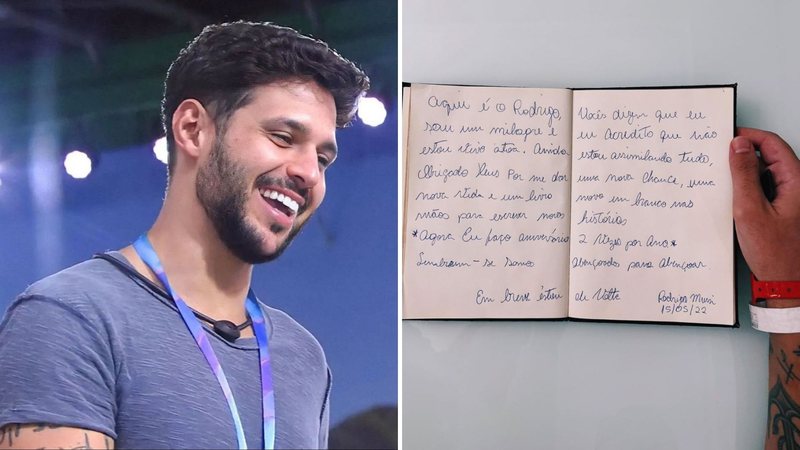 Aqui é o Rodrigo,
sou um milagre e
estou vivo
Obrigado Deus Por me dar
nova vida e um livro
mãos para escrever novas
*Agora Eu faço aniversário
Lembrem-se somos
Em breve estou
Vocês dizem que eu
eu Acredito que não
estou assimilando tudo,
uma nova chance, uma
novo em branco nas
histórias
2 Vezes por Ano*
abençoados para Abençoar
de Volta
Rodrigo Mussi
15/05/22